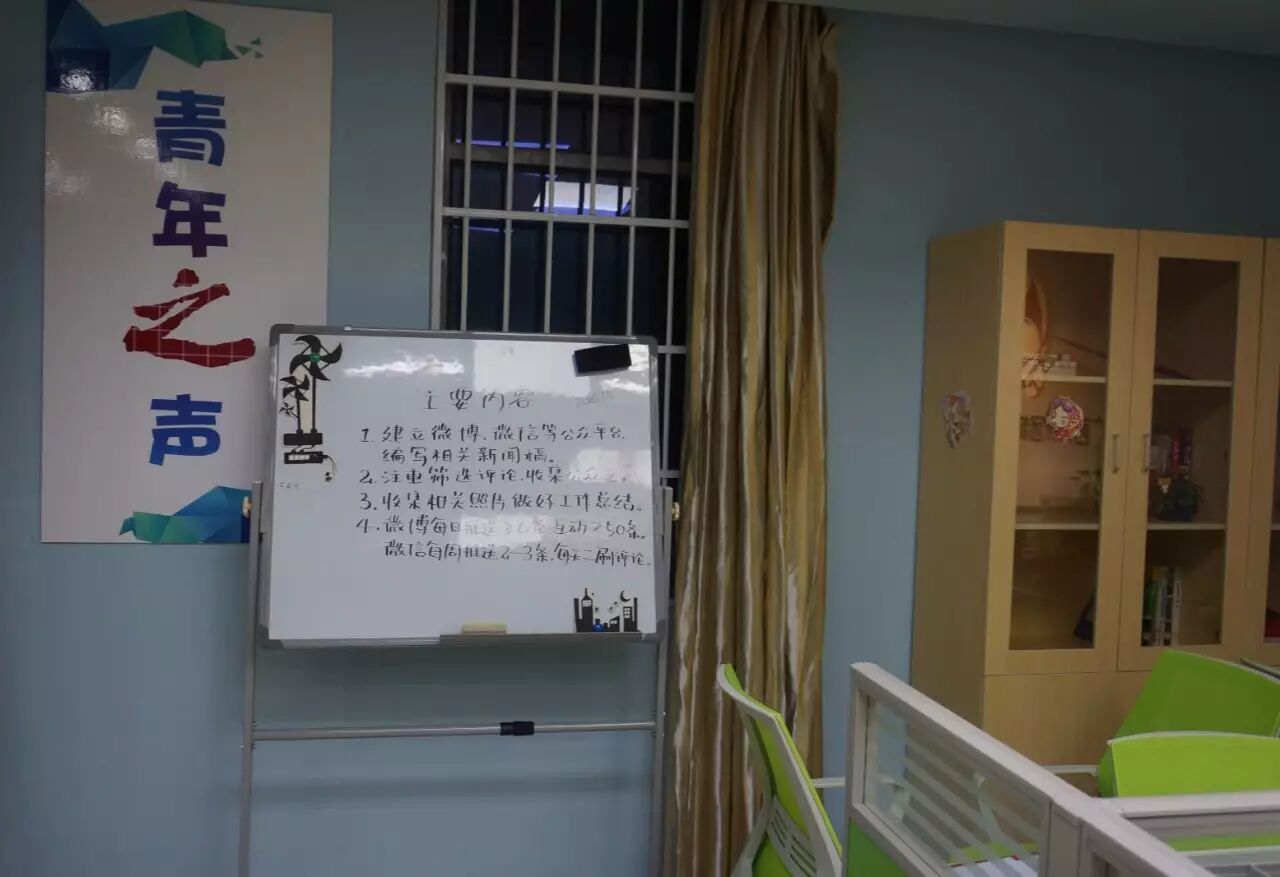 青年之声
主要内容
1. 建立微博、微信等公众平台,
编写相关新闻稿。
2. 注重筛选评论,收集公众之
3. 收集相关照片做好工作总结。
4. 微博每日推送 条互动≥50条。
微信每周推送2-3条,每天二刷评论。